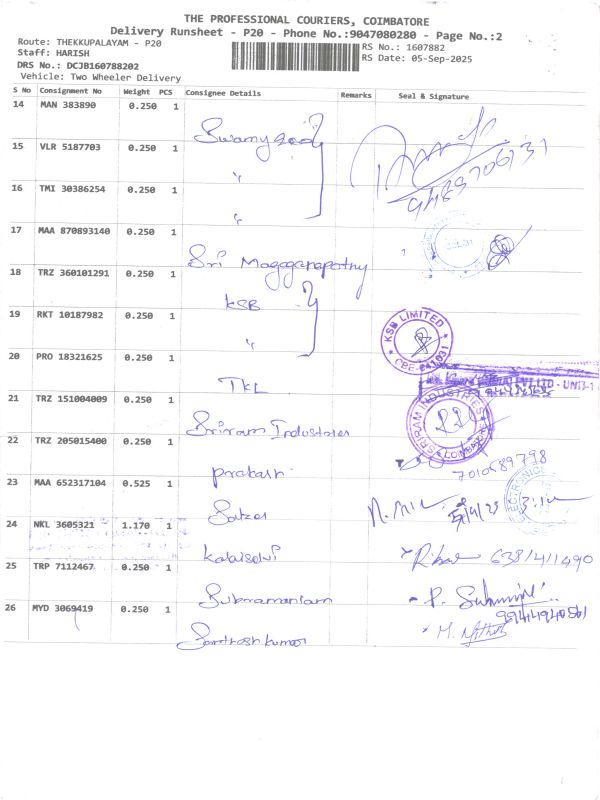 THE PROFESSIONAL COURIERS, COIMBATORE
Delivery Runsheet - P20 - Phone No.:9047080280 - Page No.:2
Route: THEKKUPALAYAM - P20
Staff: HARISH
RS No.: 1607882
DRS No.: DCJB160788202
RS Date: 05-Sep-2025
Vehicle: Two Wheeler Delivery
S No Consignment No Weight PCS Consignee Details Remarks Seal & Signature
14 MAN 383890 0.250 1
15 VLR 5187703 0.250 1 "
16 TMI 30386254 0.250 1 "
17 MAA 870893140 0.250 1 Sri
18 TRZ 360101291 0.250 1 KSB
19 RKT 10187982 0.250 1 KSB LIMITED
20 PRO 18321625 0.250 1 TKL
21 TRZ 151004009 0.250 1 Sriram Industries SRIRAM INDUSTRIES
22 TRZ 205015400 0.250 1 prakash 7010689798
23 MAA 652317104 0.525 1
24 NKL 3605321 1.170 1 Kalaiselvi
25 TRP 7112467 0.250 1 Subramaniam
26 MYD 3069419 0.250 1 Santhoshkumar